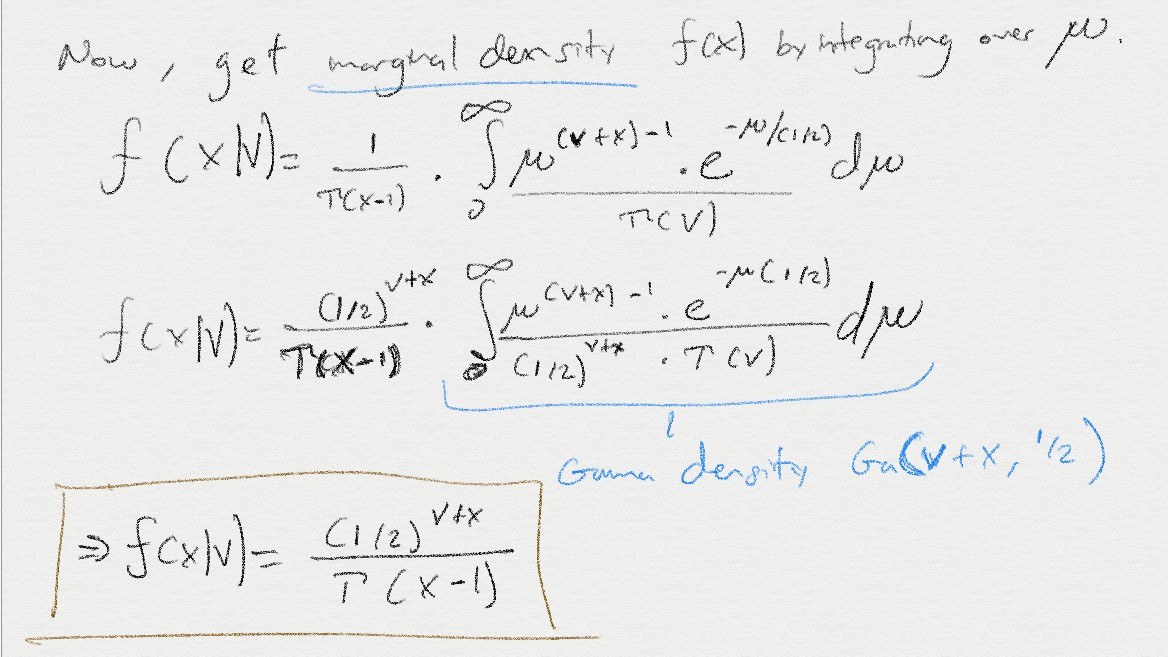 Now, get marginal density f(x) by integrating over μ.
f(x|v) = 1/Γ(x-1) · ∫_0^∞ μ^{(v+x)-1} · e^{-μ/(1/2)} / Γ(v) dμ
f(x|v) = (1/2)^{v+x}/Γ(x-1) · ∫_0^∞ μ^{(v+x)-1} · e^{-μ(1/2)} / ((1/2)^{v+x} · Γ(v)) dμ
Gamma density Ga(v+x, 1/2)
⇒ f(x|v) = (1/2)^{v+x} / Γ(x-1)